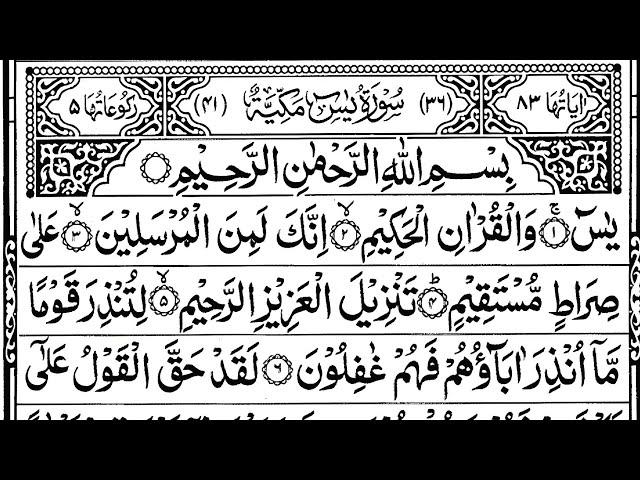 اٰیَاتُهَا ۸۳ (۳۶) سُوۡرَةُ یٰسٓ مَکِّیَّةٌ (۴۱) رُکُوۡعَاتُهَا ۵
بِسۡمِ اللّٰهِ الرَّحۡمٰنِ الرَّحِیۡمِ
یٰسٓ ۚ‏﴿۱﴾ وَالۡقُرۡاٰنِ الۡحَکِیۡمِ ۙ‏﴿۲﴾ اِنَّکَ لَمِنَ الۡمُرۡسَلِیۡنَ ۙ‏﴿۳﴾ عَلٰی
صِرَاطٍ مُّسۡتَقِیۡمٍ ؕ‏﴿۴﴾ تَنۡزِیۡلَ الۡعَزِیۡزِ الرَّحِیۡمِ ۙ‏﴿۵﴾ لِتُنۡذِرَ قَوۡمًا
مَّاۤ اُنۡذِرَ اٰبَآؤُهُمۡ فَهُمۡ غٰفِلُوۡنَ ﴿۶﴾ لَقَدۡ حَقَّ الۡقَوۡلُ عَلٰۤی